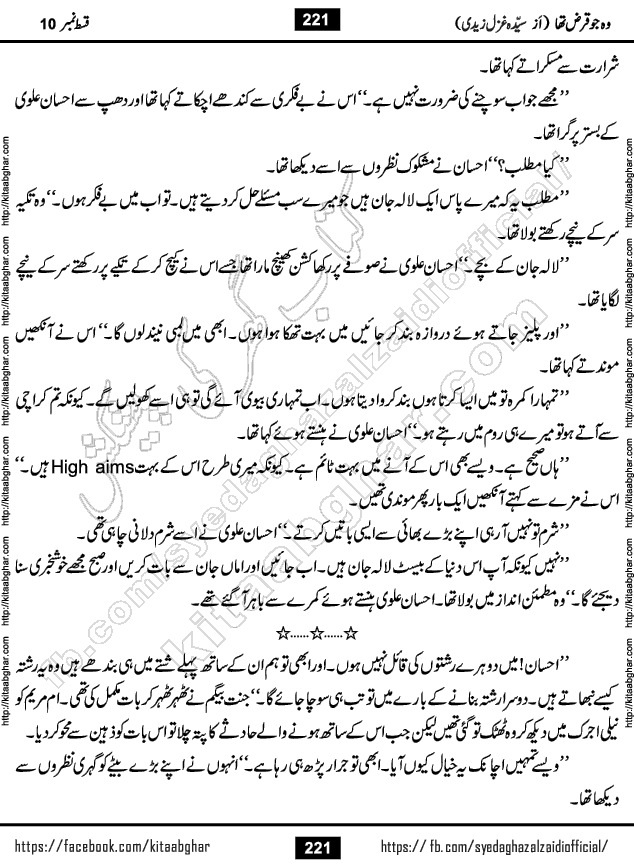 وہ جو قرض تھا (از سیّدہ غزل زیدی)
221
قسط نمبر 10
شرارت سے مسکراتے کہا تھا۔
’’مجھے جواب سوچنے کی ضرورت نہیں ہے۔‘‘ اس نے بے فکری سے کندھے اچکاتے کہا تھا اور دھپ سے احسان علوی
کے بستر پر گرا تھا۔
’’کیا مطلب؟‘‘ احسان نے مشکوک نظروں سے اسے دیکھا تھا۔
’’مطلب یہ کہ میرے پاس ایک لالہ جان ہیں جو میرے سب مسئلے حل کر دیتے ہیں۔ تو اب میں بے فکر ہوں۔‘‘ وہ تکیہ
سر کے نیچے رکھتے بولا تھا۔
’’لالہ جان کے بچے۔‘‘ احسان علوی نے صوفے پر رکھا کشن کھینچ مارا تھا جسے اس نے کیچ کر کے تکیے پر رکھتے سر کے نیچے
لگایا تھا۔
’’اور پلیز جاتے ہوئے دروازہ بند کر جائیں میں بہت تھکا ہوا ہوں۔ ابھی میں لمبی نیند لوں گا۔‘‘ اس نے آنکھیں
موندتے کہا تھا۔
’’تمہارا کمرہ تو میں ایسا کرتا ہوں بند کروا دیتا ہوں۔ اب تمہاری بیوی آئے گی تو ہی اسے کھولیں گے۔ کیونکہ تم کراچی
سے آتے ہو تو میرے ہی روم میں رہتے ہو۔‘‘ احسان علوی نے ہنستے ہوئے کہا تھا۔
’’ہاں صحیح ہے۔ ویسے بھی اس کے آنے میں بہت ٹائم ہے۔ کیونکہ میری طرح اس کے بہت High aims ہیں۔‘‘
اس نے مزے سے کہتے آنکھیں ایک بار پھر موندی تھیں۔
’’شرم تو نہیں آ رہی اپنے بڑے بھائی سے ایسی باتیں کرتے۔‘‘ احسان علوی نے اسے شرم دلانی چاہی تھی۔
’’نہیں کیونکہ آپ اس دنیا کے بیسٹ لالہ جان ہیں۔ اب جائیں اور اماں جان سے بات کریں اور صبح مجھے خوشخبری سنا
دیجئے گا۔‘‘ وہ مطمئن انداز میں بولا تھا۔ احسان علوی ہنستے ہوئے کمرے سے باہر آ گئے تھے۔
☆......☆......☆
’’احسان! میں دوہرے رشتوں کی قائل نہیں ہوں۔ اور ابھی تو ہم ان کے ساتھ پہلے رشتے میں ہی بندھے ہیں وہ یہ رشتہ
کیسے نبھاتے ہیں۔ دوسرا رشتہ بنانے کے بارے میں تو تب ہی سوچا جائے گا۔‘‘ جنت بیگم نے ٹھہر ٹھہر کر بات مکمل کی تھی۔ ام مریم کو
نیلی اجرک میں دیکھ کر وہ ٹھٹک تو گئی تھیں لیکن جب اس کے ساتھ ہونے والے حادثے کا پتہ چلا تو اس بات کو ذہن سے محو کر دیا۔
’’ویسے تمہیں اچانک یہ خیال کیوں آیا۔ ابھی تو جرار پڑھ ہی رہا ہے۔‘‘ انہوں نے اپنے بڑے بیٹے کو گہری نظروں سے
دیکھا تھا۔
http://kitaabghar.com http://kitaabghar.com http://kitaabghar.com http://kitaabghar.com http://kitaabghar.com http://kitaabghar.com
http://kitaabghar.com http://kitaabghar.com http://kitaabghar.com http://kitaabghar.com http://kitaabghar.com http://kitaabghar.com
fb.com/syedaghazalzaidiofficial/
kitaabghar.com
کتاب گھر کی پیشکش
https://facebook.com/kitaabghar
221
https:// fb.com/syedaghazalzaidiofficial/